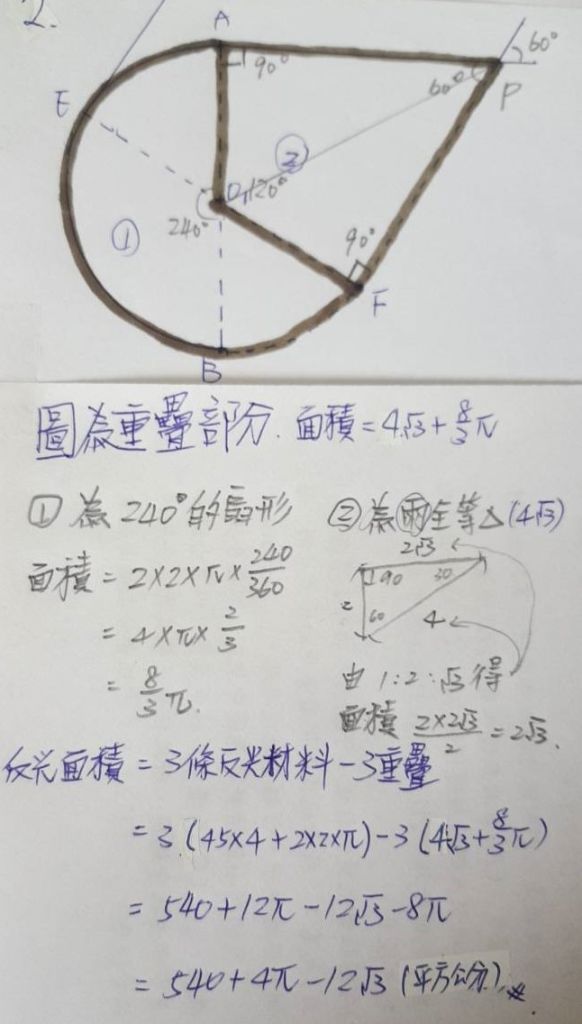 2.
A
90°
60°
60°
P
E
②
O
120°
240°
①
90°
F
B
圖為重疊部分. 面積=4√3+8/3π
① 為 240°的扇形
面積 = 2×2×π×240/360
= 4×π×2/3
= 8/3π.
② 為兩全等△(4√3)
2√3
90
30
2
60
4
由 1:2:√3 得
面積 2×2√3/2 = 2√3.
反光面積 = 3條反光材料-3重疊
= 3(45×4+2×2×π)-3(4√3+8/3π)
= 540+12π-12√3-8π
= 540+4π-12√3 (平方公分)